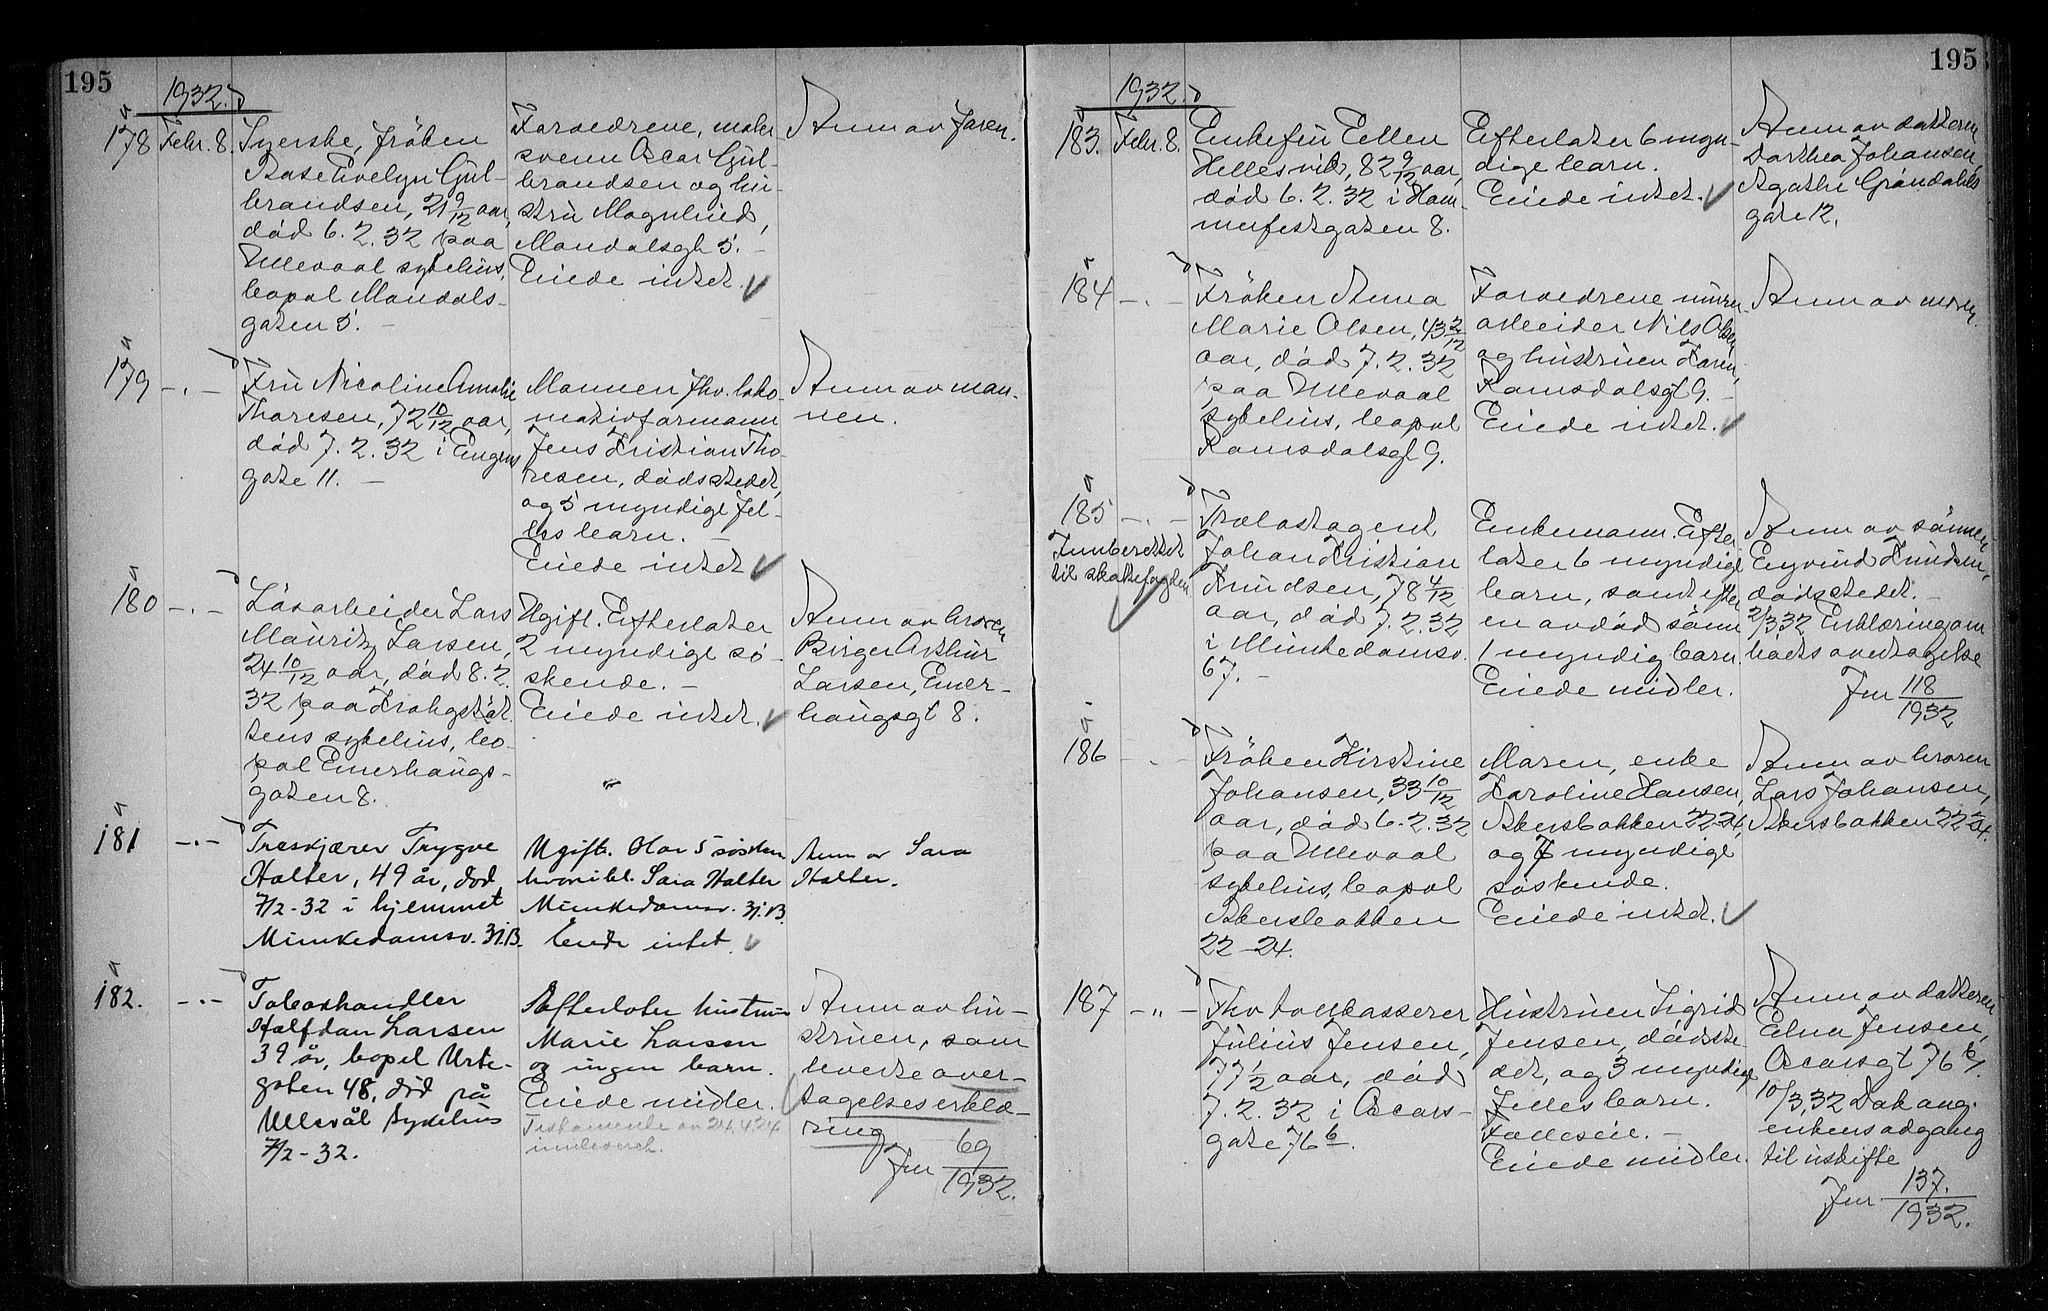 195
1932.
178
Febr. 8.
Syerske, fröken
Rose Evelyn Gul-
brandsen, 21 9/12 aar,
död 6. 2. 32 paa
Ullevaal sykehus,
bopæl Mandals-
gaten 5. -
Forældrene, maler
svenn Oscar Gul-
brandsen og hu-
stru Magnhild,
Mandalsgt 5. -
Eiede intet.
Anm av faren.
179
-.-
Fru Nicoline Amalie
Thoresen, 72 10/12 aar,
död 7. 2. 32 i Eugens
gate 11. -
Mannen fhv. loko-
motivformann
Jens Kristian Tho-
resen, dödsstedet,
og 5 myndige fel-
les barn. -
Eiede intet
Anm av man-
nen.
180
-.-
Lösarbeider Lars
Mauritz Larsen,
24 10/12 aar, död 8. 2.
32 paa Krohgstöt
tens sykehus, bo-
pæl Enerhaugs-
gaten 8.
Ugift. Efterlater
2 myndige sö-
skende. -
Eiede intet.
Anm av broren
Birger Arthur
Larsen, Ener-
haugsgt 8.
181
-.-
Treskjærer Trygve
Halter, 49 år, död
7/2-32 i hjemmet
Munkedamsv. 31.B.
Ugift. Har 5 søsken
hvoribl. Sara Halter
Munkedamsv. 31.B.
Eiede intet.
Anm av Sara
Halter.
182.
-.-
Tobakshandler
Halfdan Larsen
39 år, bopel Urte-
gaten 48, död på
Ullevål sykehus
7/2-32.
Efterlater hustru
Marie Larsen
og ingen barn.
Eiede midler.
Testamente av 24.4.24
innlevert.
Anm av hu-
struen, som
leverte over-
tagelseserklæ-
ring
Jnr 69/1932.
195
1932.
183.
Febr. 8.
Enkefru Ellen
Hellesvik, 82 9/12 aar,
död 6. 2. 32 i Ham-
merfestgaten 8.
Efterlater 6 myn-
dige barn.
Eiede intet.
Anm av datteren
Dorthea Johansen,
Agathe Gröndahls
gate 12.
184
-.-
Fröken Anna
Marie Olsen, 43 2/12
aar, död 7. 2. 32
paa Ullevaal
sykehus, bopæl
Romsdalsgt 9.
Forældrene murer-
arbeider Nils Olsen
og hustruen Karen,
Romsdalsgt 9. -
Eiede intet.
Anm av moren.
185
-.-
Innberettet
til skattefogden
Trælastagent
Johan Kristian
Knudsen, 78 4/12
aar, död 7. 2. 32
i Munkedamsv.
67. -
Enkemann. Efter
later 6 myndige
barn, samt efter
en avdöd sönn
1 myndig barn.
Eiede midler.
Anm av sönnen
Eyvind Knudsen,
dödsstedet. -
2/3 32 Erklæring om
boets overtagelse
Jnr 118/1932
186
-.-
Fröken Kirstine
Johansen, 33 10/12
aar, död 6. 2. 32
paa Ullevaal
sykehus, bopæl
Akersbakken
22-24.
Moren, enke
Karoline Hansen,
Akersbakken 22-24,
og 7 myndige
söskende.
Eiede intet.
Anm av broren
Lars Johansen,
Akersbakken 22-24.
187
-„-
Fhv tollkasserer
Julius Jensen,
77 1/2 aar, död
7. 2. 32 i Oscars-
gate 76 b.
Hustruen Sigrid
Jensen, dödsste-
det, og 3 myndige
felles barn.
Felleseie. -
Eiede midler.
Anm av datteren
Edna Jensen,
Oscarsgt 76 b/.
10/3.32 Dok ang.
enkens adgang
til uskifte
Jnr 137./1932.